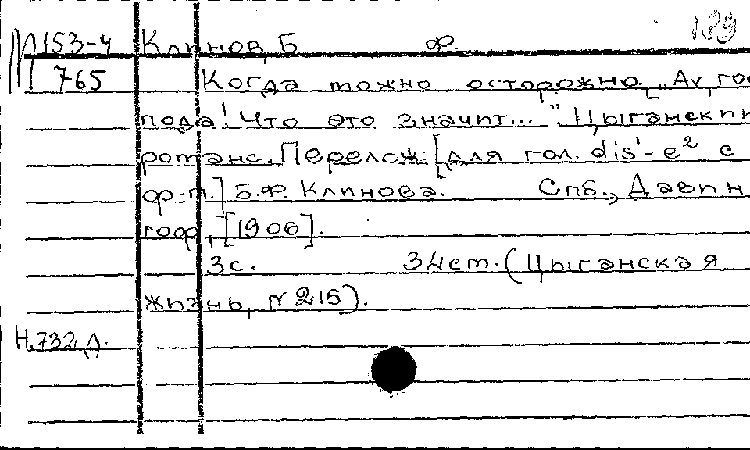 189
М153-4 Клинов, Б ф.
765 Когда можно осторожно, „Ах, гос
пода! Что это значит..." Цыгански
романс. Перелож. [для гол. dis¹-e² с
ф-п.] Б.Ф. Клинова. Спб., Давин
гоф, [1906].
3с. 34см. (Цыганская
жизнь, N 215).
Н.732.д.